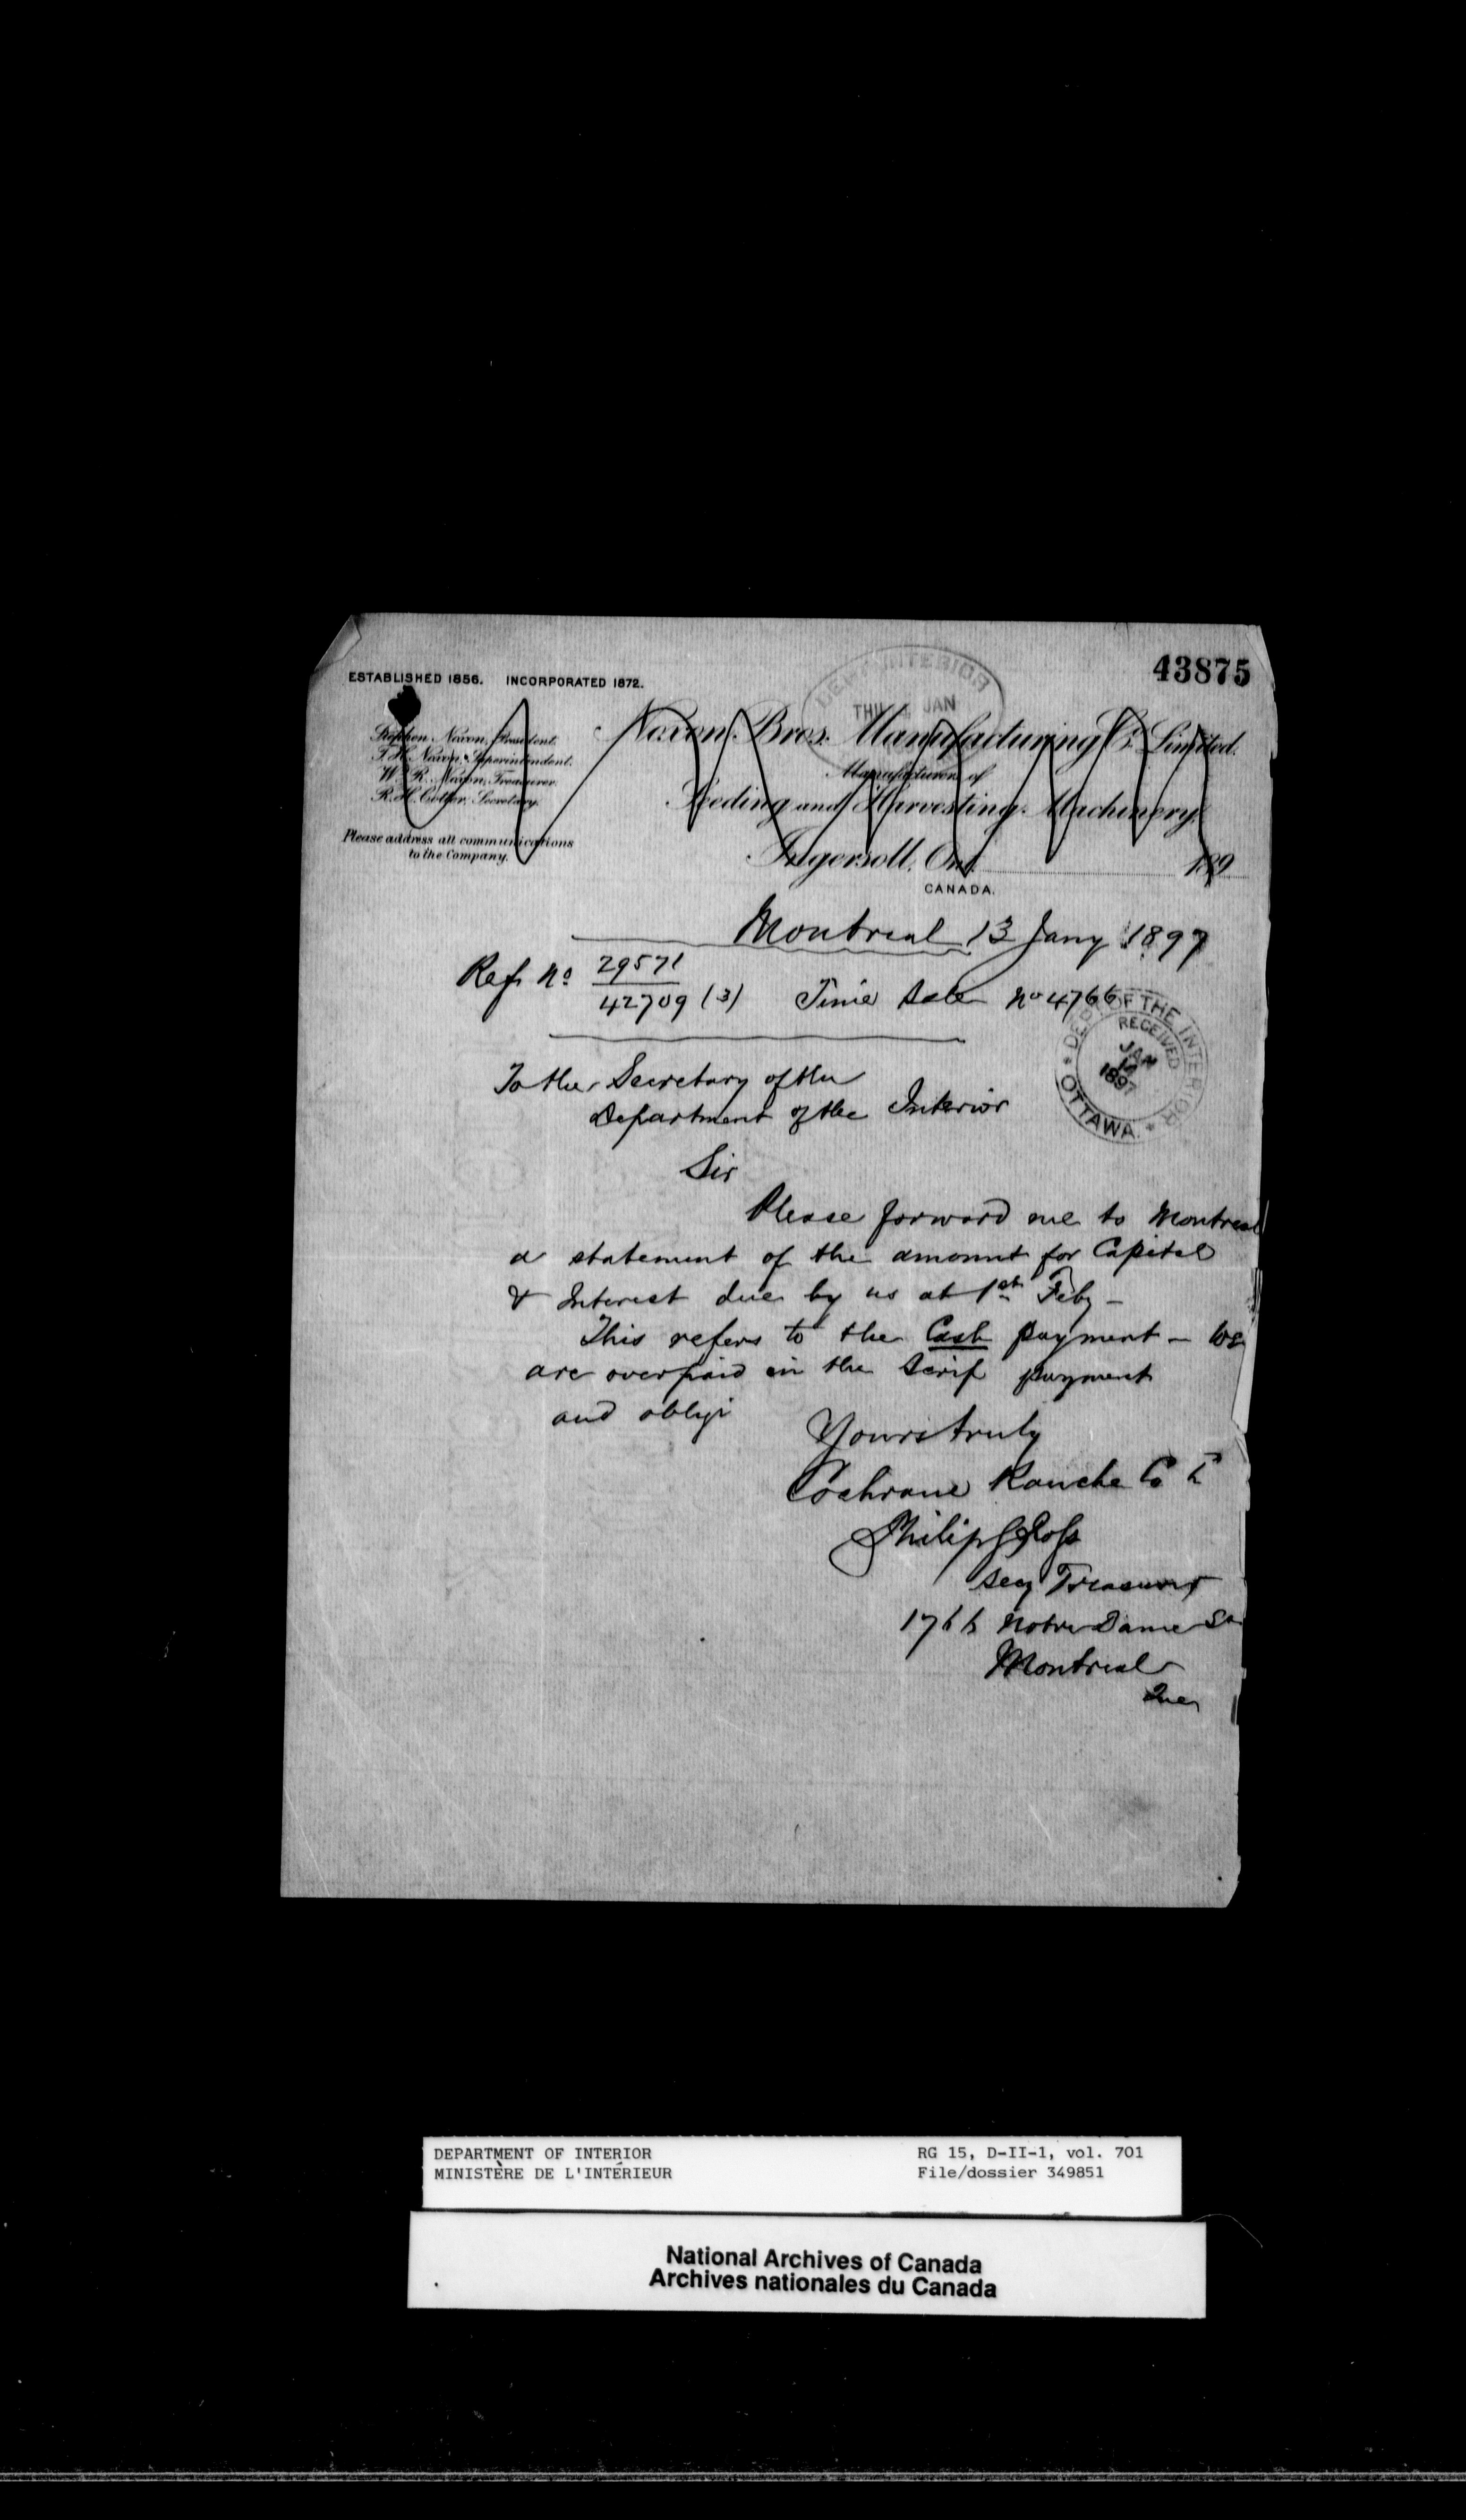 43875
ESTABLISHED 1856. INCORPORATED 1872.
DEPT INTERIOR
THU JAN
Stephen Noxon, President.
T. H. Noxon, Superintendent.
W. R. Noxon, Treasurer.
R. H. Cotter, Secretary.
Please address all communications
to the Company.
Noxon Bros. Manufacturing Co. Limited.
Manufacturers of
Seeding and Harvesting Machinery.
Ingersoll, Ont. 189
CANADA.
Montreal 13 Jany 1897
Ref No 29571
42709 (3) Time Sale No 4766
DEPT. OF THE INTERIOR
RECEIVED
JAN
14
1897
OTTAWA.
To the Secretary of the
Department of the Interior
Sir
Please forward me to Montreal
a statement of the amount for Capital
& Interest due by us at 1st Feby -
This refers to the Cash payment - We
are overpaid in the Scrip payment
and oblige
Yours truly
Cochrane Ranche Co L
Philip S Ross
Secy Treasurer
1766 Notre Dame St
Montreal
Que
DEPARTMENT OF INTERIOR
MINISTÈRE DE L'INTÉRIEUR
RG 15, D-II-1, vol. 701
File/dossier 349851
National Archives of Canada
Archives nationales du Canada